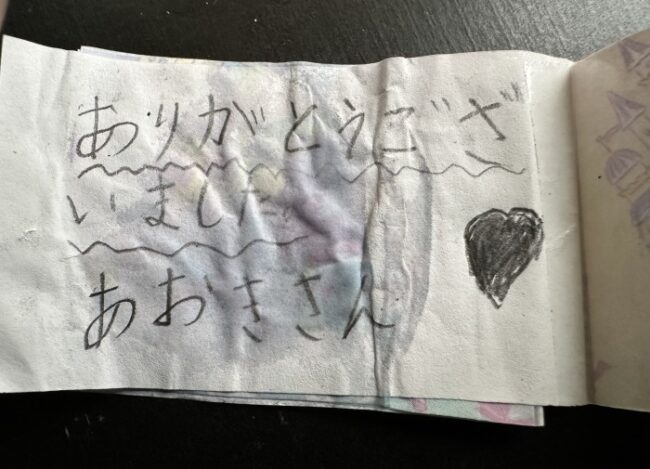 ありがとうござ
いました
あおきさん